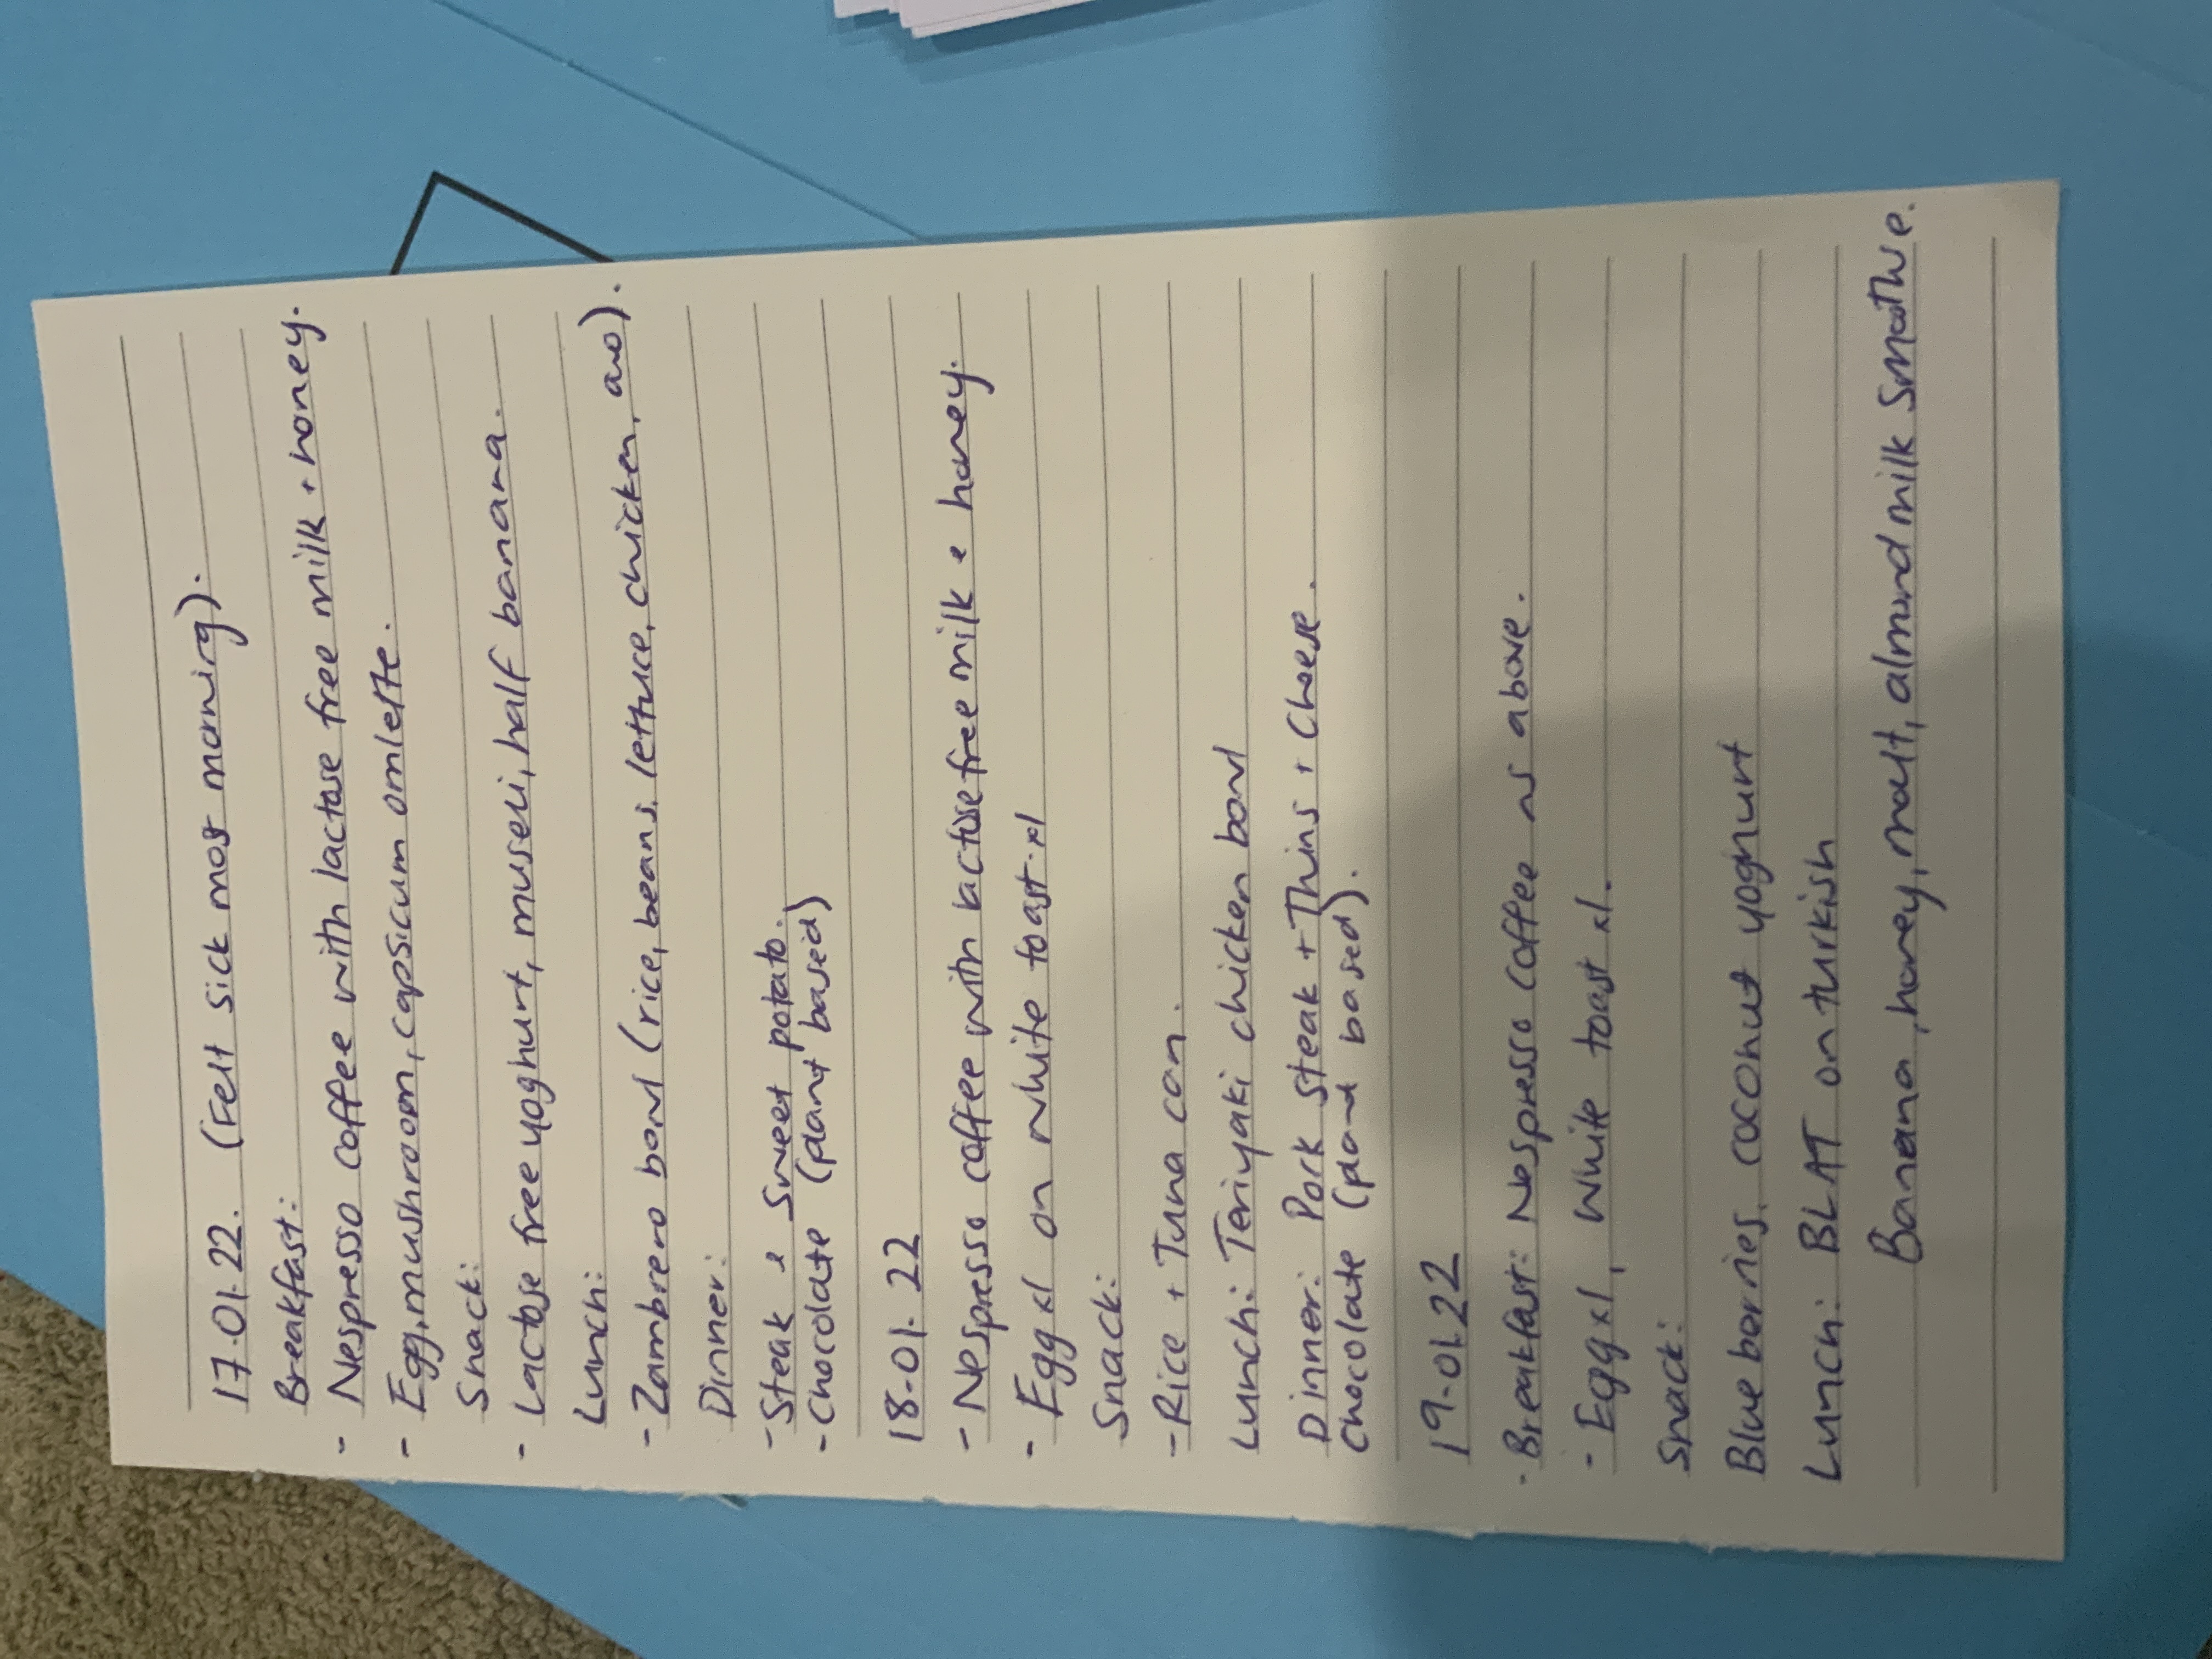 17.01.22. (Felt sick most morning).
Breakfast:
- Nespresso coffee with lactose free milk + honey.
- Egg, mushroom, capsicum omlette.
Snack:
- Lactose free yoghurt, museli, half banana.
Lunch:
- Zambrero bowl (rice, beans, lettuce, chicken, avo).
Dinner:
- Steak & sweet potato.
- Chocolate (plant based)
18.01.22
- Nespresso coffee with lactose free milk & honey.
- Egg x1 on white toast x1
Snack:
- Rice + Tuna can.
Lunch: Teriyaki chicken bowl
Dinner: Pork steak + Thins + Cheese.
Chocolate (plant based).
19.01.22
- Breakfast: Nespresso coffee as above.
- Egg x1, white toast x1.
Snack:
Blue berries, coconut yoghurt
Lunch: BLAT on turkish
Banana, honey, malt, almond milk smoothie.